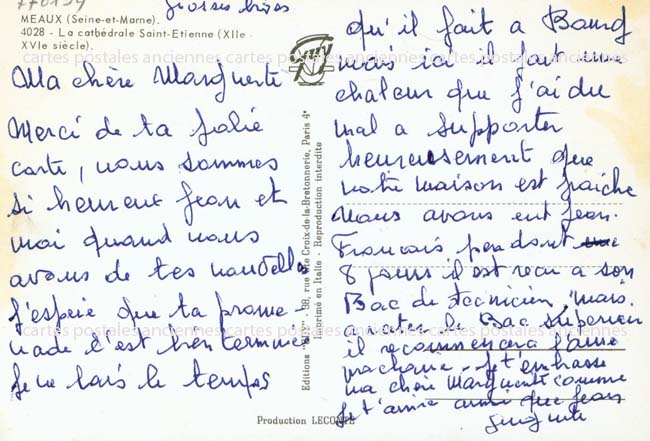 770134
grosses bises
MEAUX (Seine-et-Marne).
4028 - La cathédrale Saint-Etienne (XIIe -
XVIe siècle).
cartes postales anciennes cartes postales anciennes cartes postales anciennes
Ma chère Marguerite
Merci de ta jolie
carte, nous sommes
si heureux Jean et
moi quand nous
avons de tes nouvelles
j'espère que ta prome-
nade c'est bien terminée
je ne sais le temps
Editions "GUY" - 38, rue Ste Croix-de-la-Bretonnerie, Paris 4e
Imprimé en Italie - Reproduction interdite
Production LECONTE
qu'il fait a Bourg
mais ici il fait une
chaleur que j'ai du
mal a supporter
heureusement que
notre maison est fraiche
Nous avons eut Jean.
Francois pendant
8 jours il est recu a son
Bac de tecnicien mais.
a rater le Bac Superieur
il recommencera l'année
prochaine - Je t'embrasse
ma chère Marguerite comme
je t'aime ainsi que Jean
cartes postales anciennes cartes postales anciennes cartes postales anciennes